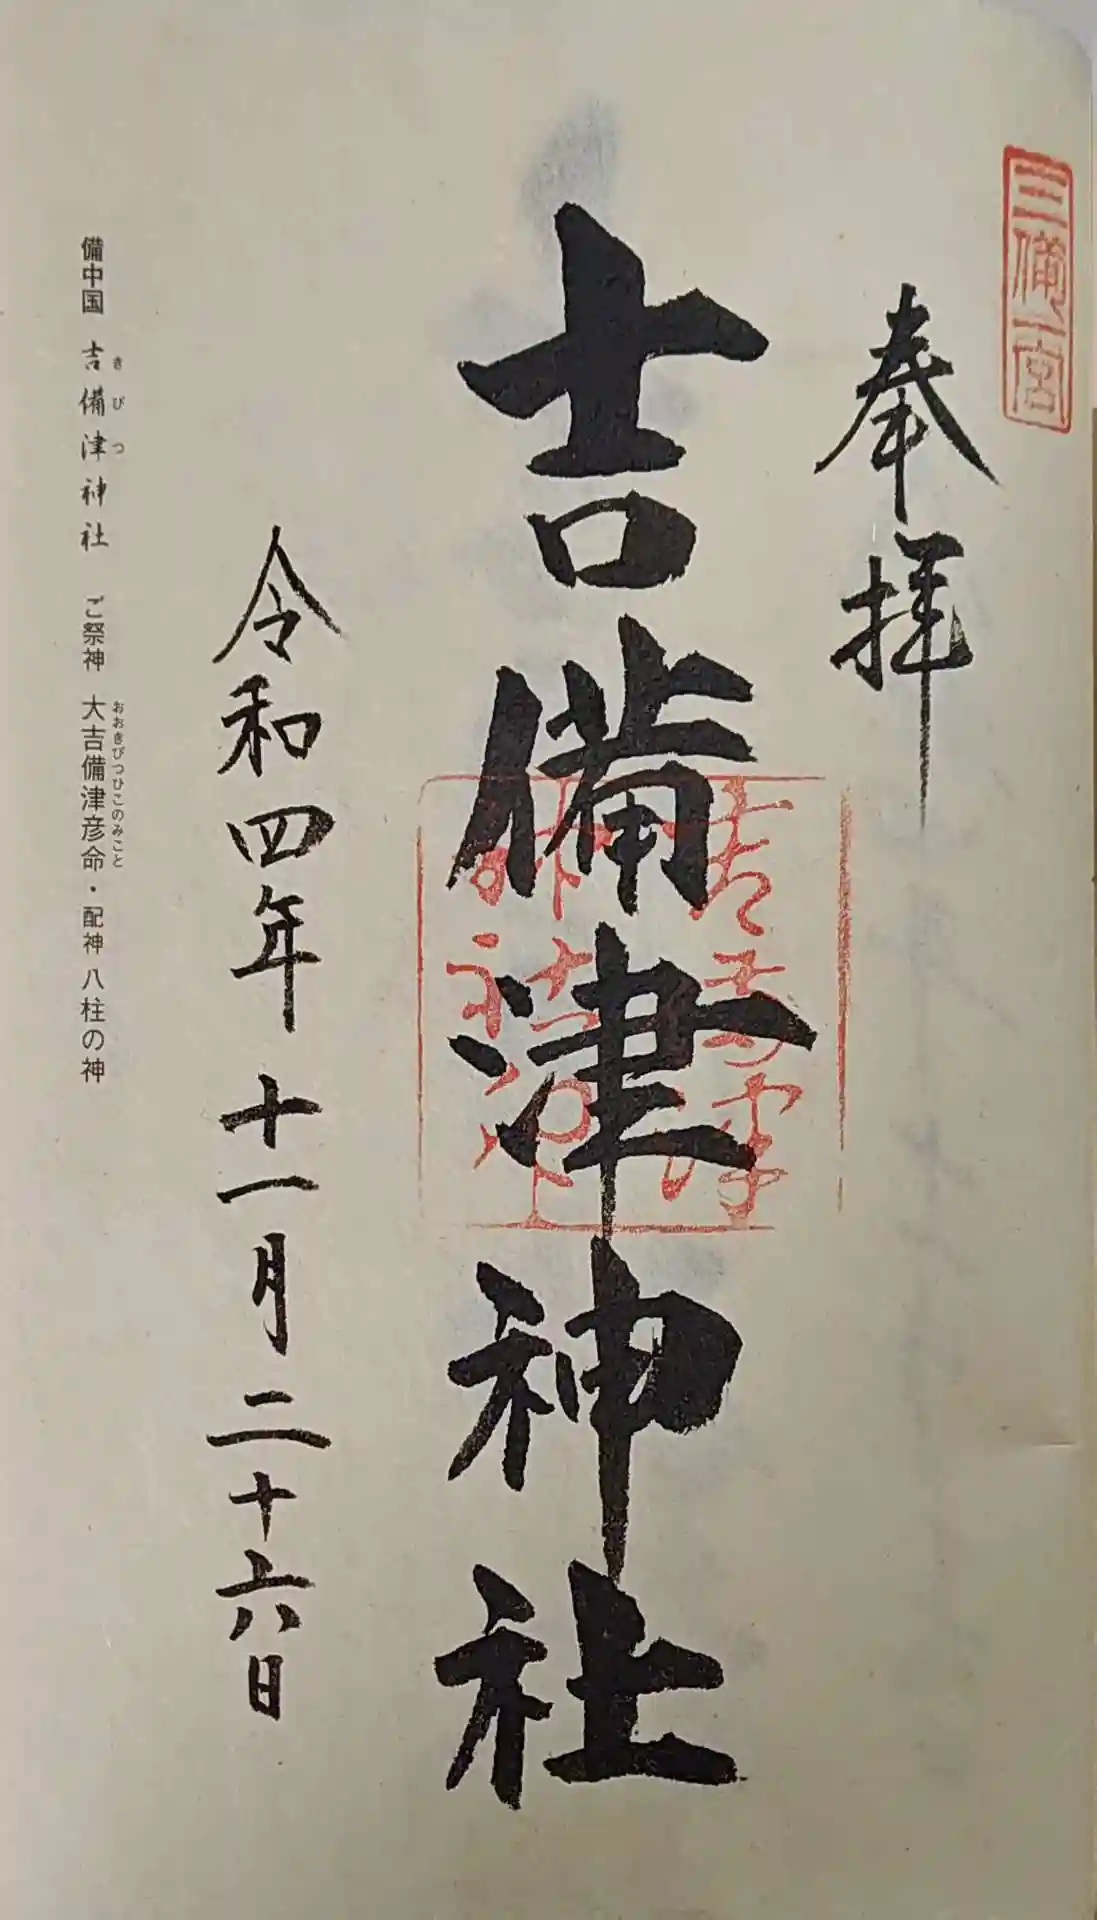 三備一宮
奉拝
吉備津神社
令和四年十一月二十六日
備中国 吉備津神社 ご祭神 大吉備津彦命・配神 八柱の神
きびつ
おおきびつひこのみこと